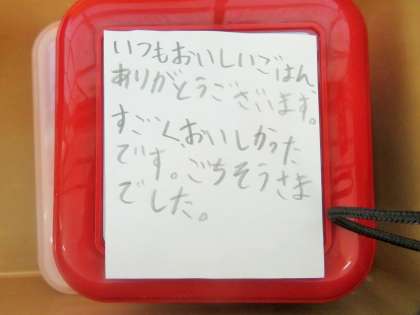 いつもおいしいごはん、
ありがとうございます。
すごく、おいしかった
です。ごちそうさま
でした。